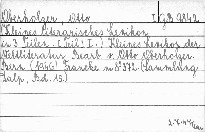 Oberholzer, Otto I G B 2842
Kleines literarisches Lexikon
in 3 Teilen. (Teil:) I.: Kleines Lexikon der
Weltliteratur. Bearb. v. Otto Oberholzer.
Bern (1946) Francke m 8° 372 (Sammlung
Dalp, Bd. 15.)